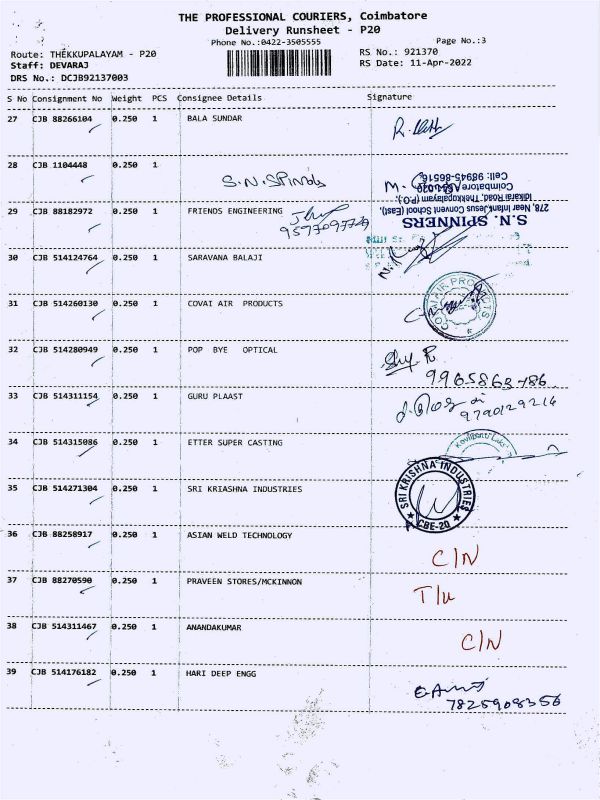 THE PROFESSIONAL COURIERS, Coimbatore
Delivery Runsheet - P20
Phone No.:0422-3505555
Page No.:3
Route: THEKKUPALAYAM - P20
RS No.: 921370
Staff: DEVARAJ
RS Date: 11-Apr-2022
DRS No.: DCJB92137003
S No Consignment No Weight PCS Consignee Details Signature
27 CJB 88266104 0.250 1 BALA SUNDAR
28 CJB 1104448 0.250 1
S.N. SPINNERS
278, Near Infant Jesus Convent School (East),
Idikarai Road, Thekkupalayam (P.O.),
Coimbatore
Cell: 98945-86516
29 CJB 88182972 0.250 1 FRIENDS ENGINEERING
30 CJB 514124764 0.250 1 SARAVANA BALAJI
31 CJB 514260130 0.250 1 COVAI AIR PRODUCTS
COVAI AIR PRODUCTS
32 CJB 514280949 0.250 1 POP BYE OPTICAL
33 CJB 514311154 0.250 1 GURU PLAAST
9790129214
34 CJB 514315086 0.250 1 ETTER SUPER CASTING
35 CJB 514271304 0.250 1 SRI KRIASHNA INDUSTRIES
SRI KRISHNA INDUSTRIES
CBE-20
36 CJB 88258917 0.250 1 ASIAN WELD TECHNOLOGY
C/N
37 CJB 88270590 0.250 1 PRAVEEN STORES/MCKINNON
38 CJB 514311467 0.250 1 ANANDAKUMAR
C/N
39 CJB 514176182 0.250 1 HARI DEEP ENGG
7825908356